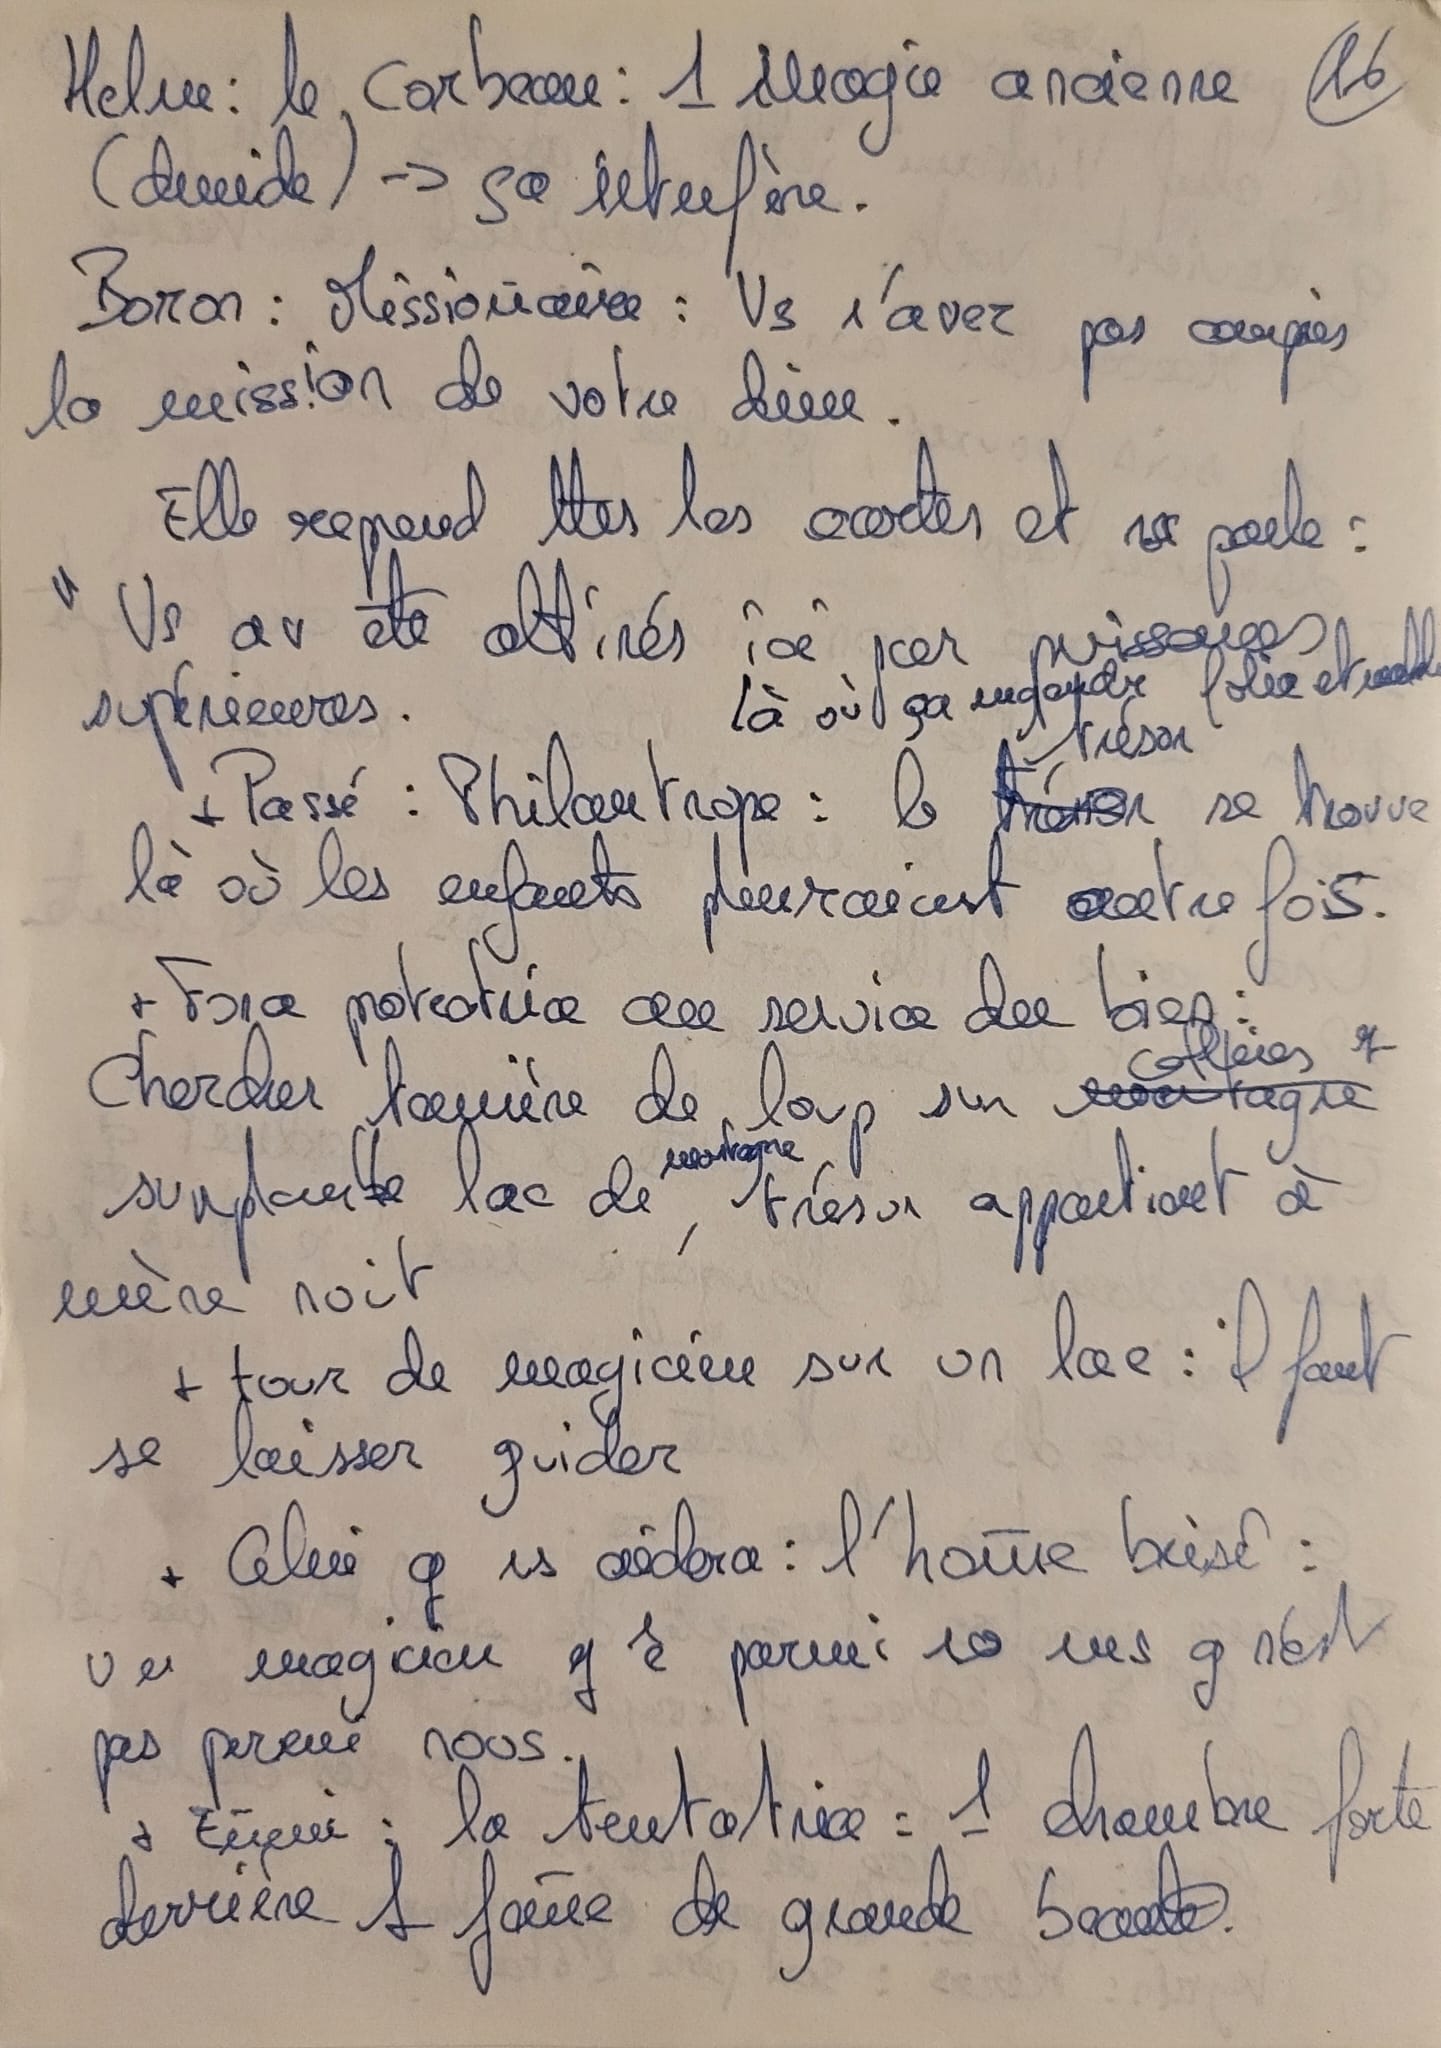 Helm: le Corbeau: 1 Magie ancienne 16
(druide) -> ça interfère.
Boron: Missionaire: Vs n'avez pas compris
la mission de votre dieu.
Elle reprend ttes les cartes et re parle:
" Vs av été attirés ici par puissances
supérieures.
là où ça engendre folie et
+ Passé: Philantrope: le trésor se trouve
là où les enfants pleuraient autrefois.
+ Force protectrice au service du bien:
Chercher tanière de loup sur collines
surplombe lac de montagne, trésor appartient à
mère nuit
+ tour de magicien sur un lac: il faut
se laisser guider
+ Celui q vs aidera: l'hōme brisé:
un magicien q parmi ns q n'est
pas parmi nous.
+ Eñemi: la tentatrice: 1 chambre forte
derrière 1 fāme de grande beauté.